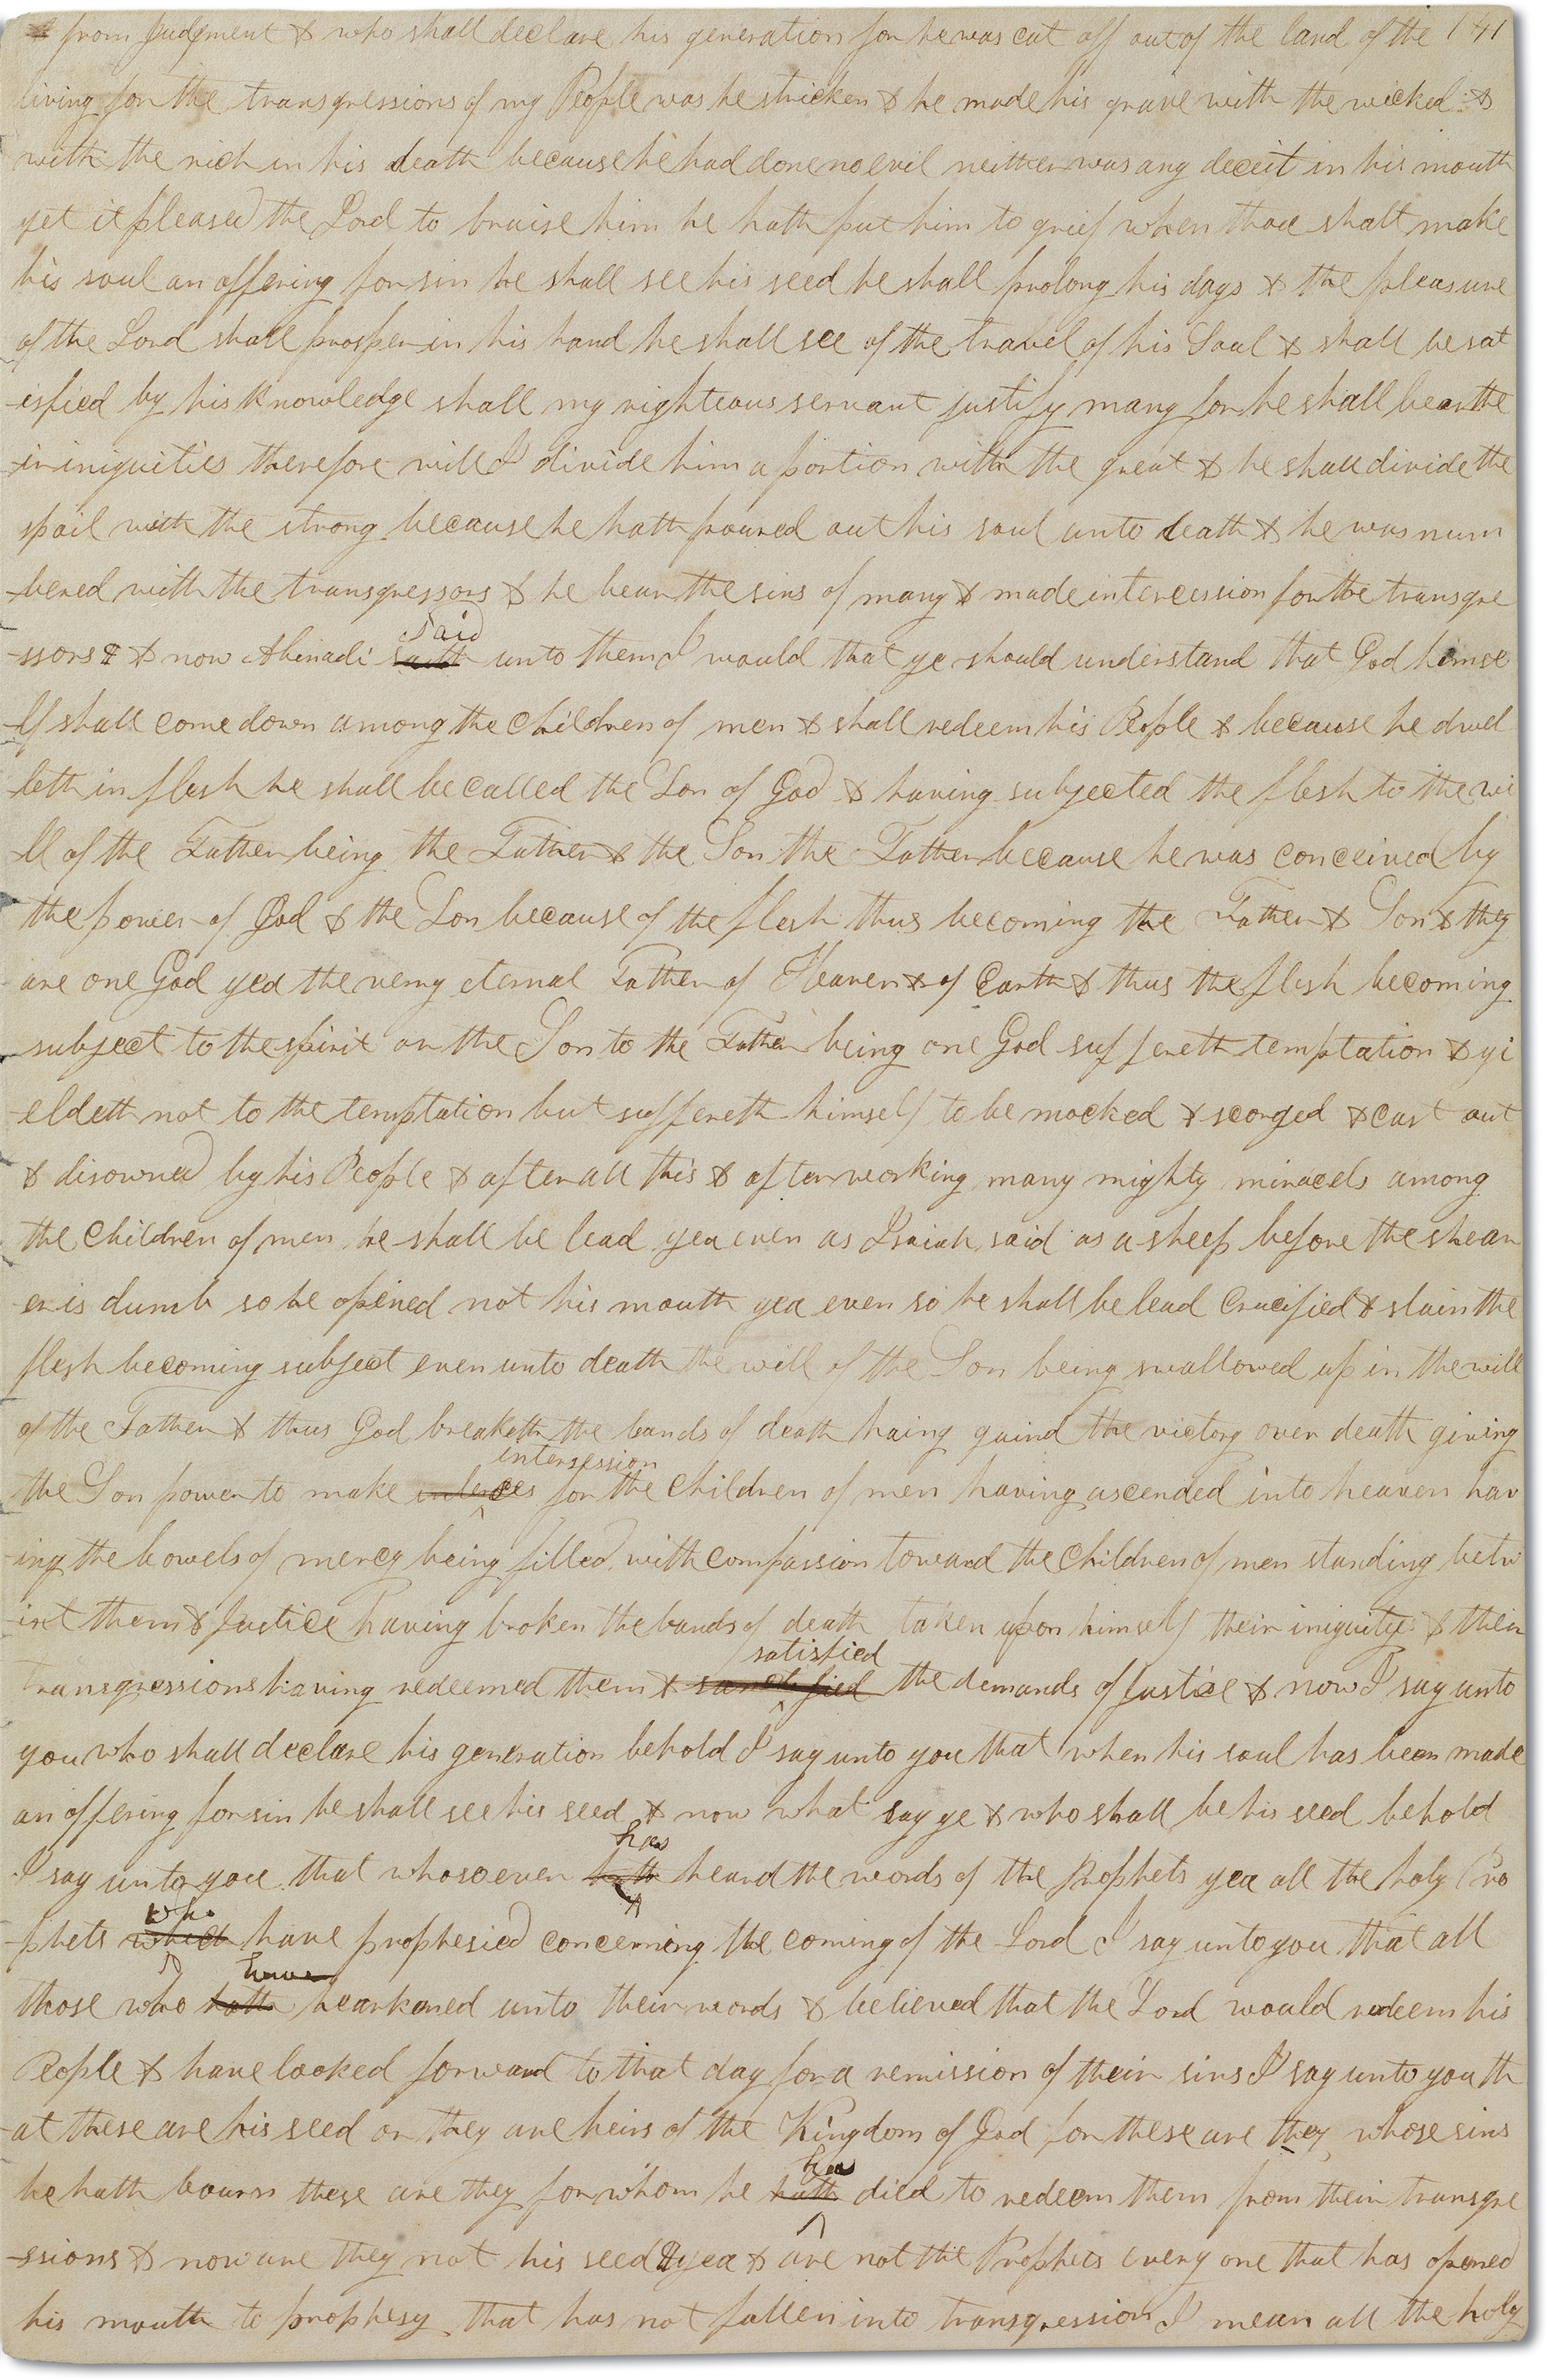 & from Judgment & who shall declare his generation for he was cut off out of the land of the 141
living for the transgressions of my People was he stricken & he made his grave with the wicked &
with the rich in his death because he had done no evil neither was any deceit in his mouth
yet it pleased the Lord to bruise him he hath put him to grief when thou shalt make
his soul an offering for sin he shall see his seed he shall prolong his days & the pleasure
of the Lord shall prosper in his hand he shall see of the travel of his Soul & shall be sat
-isfied by his knowledge shall my righteous servant justify many for he shall bear the
-ir iniquities therefore will I divide him a portion with the great & he shall divide the
spoil with the strong because he hath poured out his soul unto death & he was num
-bered with the transgressors & he bear the sins of many & made intercession for the transgre
said
-ssors & now Abinadi saith unto them I would that ye should understand that God himse
-lf shall come down among the Children of men & shall redeem his People & because he dwel
-leth in flesh he shall be called the Son of God & having subjected the flesh to the wi
-ll of the Father being the Father & the Son the Father because he was conceived by
the power of God & the Son because of the flesh thus becoming the Father & Son & they
are one God yea the very eternal Father of Heaven & of Earth & thus the flesh becoming
subject to the spirit or the Son to the Father being one God suffereth temptation & yi
-eldeth not to the temptation but suffereth himself to be mocked & scorged & cast out
& disowned by his People & after all this & after working many mighty miracels among
the Children of men he shall be lead yea even as Isaiah said as a sheep before the shear
er is dumb so he opened not his mouth yea even so he shall be lead Crucified & slain the
flesh becoming subject even unto death the will of the Son being swallowed up in the will
of the Father & thus God breaketh the bands of death haing gaind the victory over death giving
intersession
the Son power to make for the Children of men having ascended into heaven hav
-ing the bowels of mercy being filled with compassion toward the Children of men standing betw
-ixt them & Justice having broken the bands of death taken upon himself their iniquity & their
satisfied
transgressions having redeemed them & sanctified the demands of Justice & now I say unto
you who shall declare his generation behold I say unto you that when his soul has been made
an offering for sin he shall see his seed & now what say ye & who shall be his seed behold
has
I say unto you that whosoever hath heard the words of the Prophets yea all the holy Pro
who
-phets which have prophesied concerning the coming of the Lord I say unto you that all
have
those who hath hearkened unto their words & believed that the Lord would redeem his
People & have looked forward to that day for a remission of their sins I say unto you th
-at these are his seed or they are heirs of the Kingdom of God for these are they whose sins
has
he hath bourn these are they for whom he hath died to redeem them from their transgre
-ssions & now are they not his seed yea & are not the Prophets every one that has opened
his mouth to prophesy that has not fallen into transgression I mean all the holy